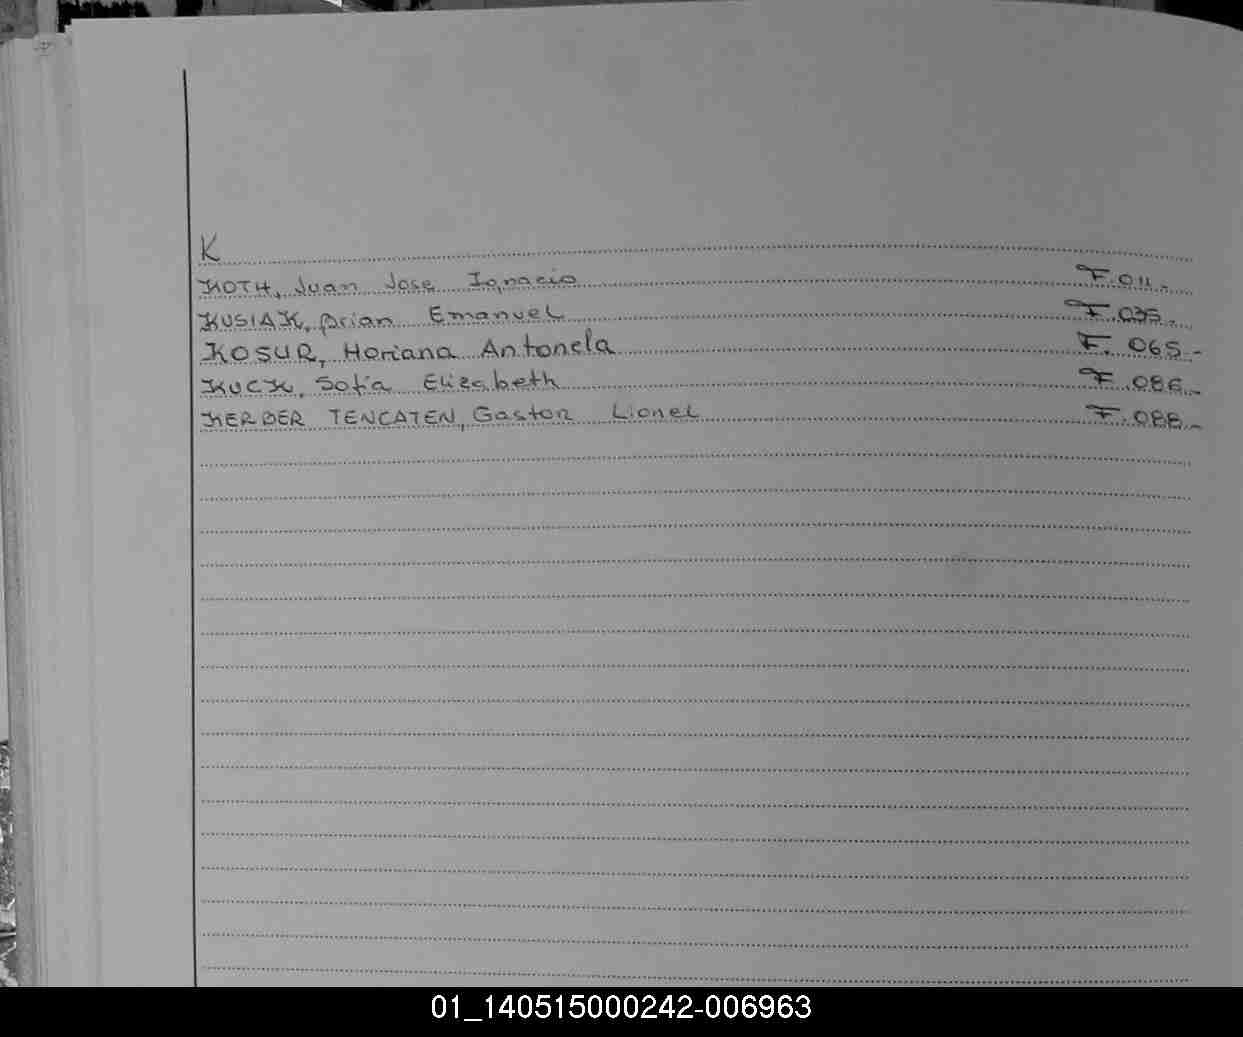 K
KOTH, Juan Jose Ignacio F. 011.-
KUSIAK, Brian Emanuel F. 035.-
KOSUR, Moriana Antonela F. 065.-
KUCK, Sofia Elizabeth F. 086.-
KERBER TENCATEN, Gaston Lionel F. 088.-
01_140515000242-006963